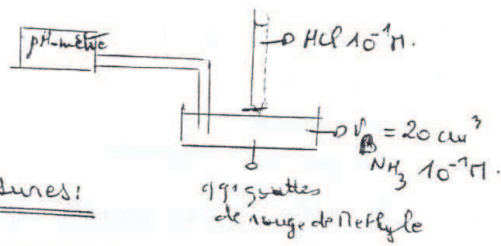 pH-mètre
HCl 10⁻¹M.
V_B = 20 cm³
NH₃ 10⁻¹M.
qqs gouttes
de rouge de Methyle
sures: